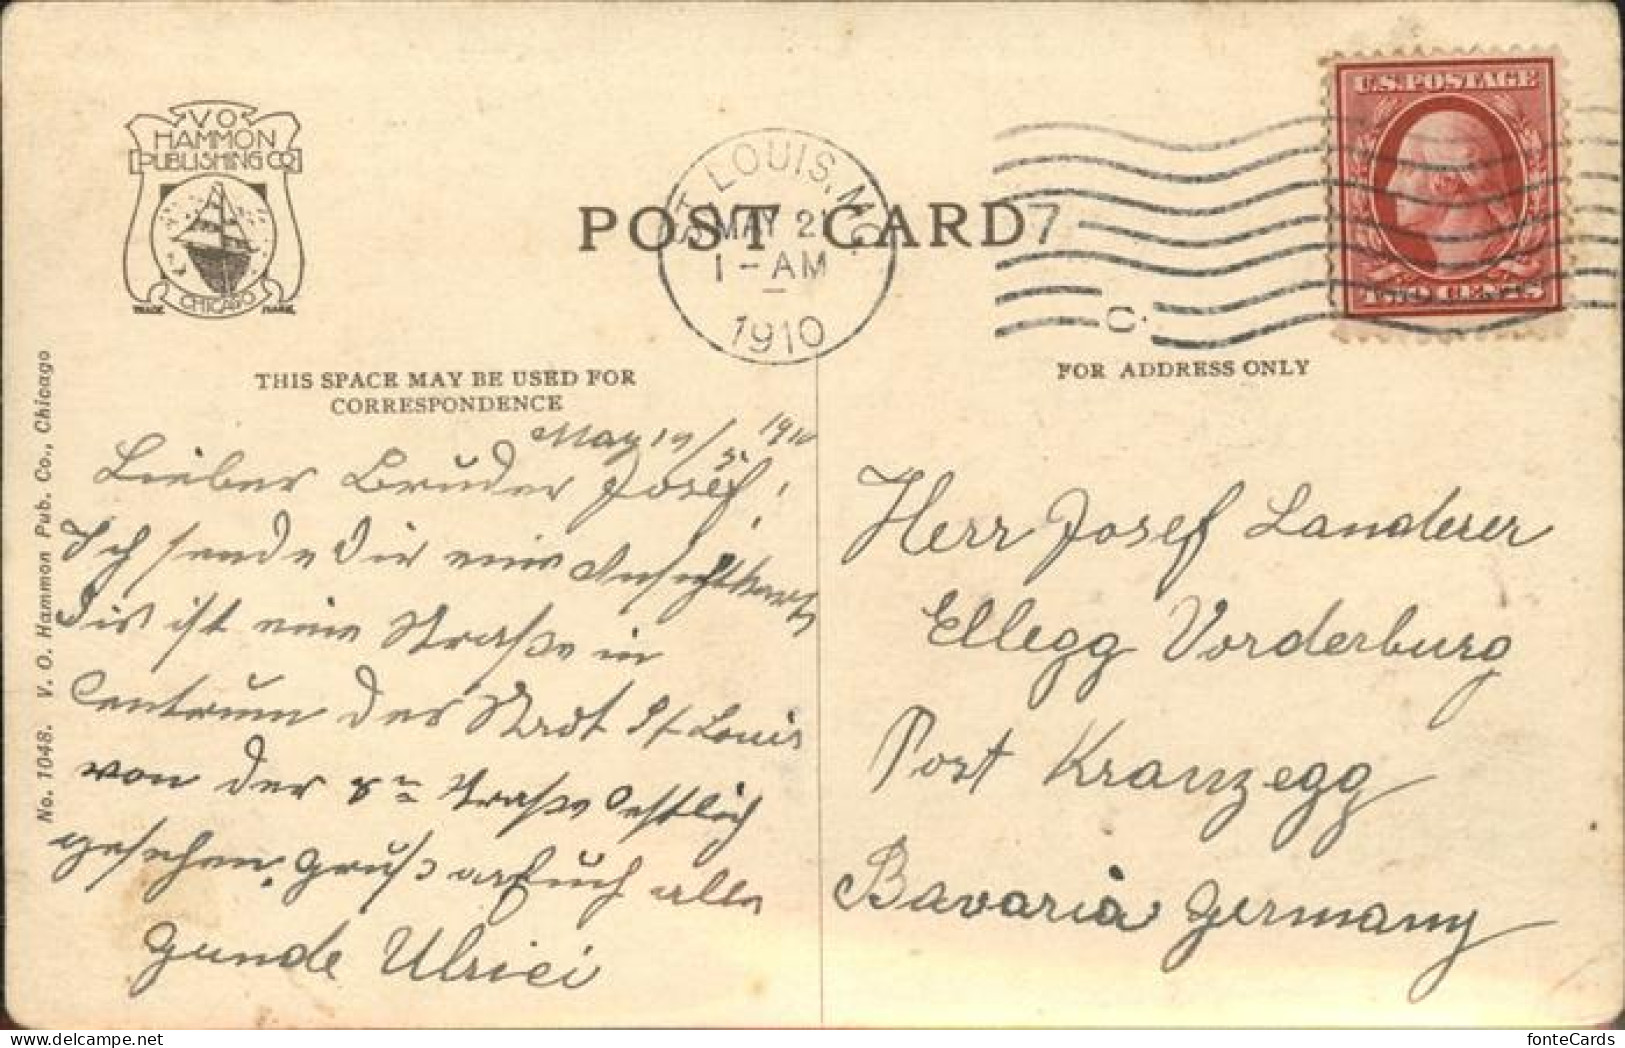 V O
HAMMON
PUBLISHING CO
CHICAGO
TRADE MARK
POST CARD
ST. LOUIS, MO.
MAY 21
1 - AM
1910
7
C.
U.S. POSTAGE
TWO CENTS
THIS SPACE MAY BE USED FOR
CORRESPONDENCE
FOR ADDRESS ONLY
No. 1048. V. O. Hammon Pub. Co., Chicago
May 19/5. 1910
Lieber Bruder Josef!
Ich sende Dir eine Ansichtkarte
Dis ist eine Straße in
Centrum der Stadt St Louis
von der 8te Straße Oestlich
gesehen. Gruß an Euch alle
Ulrici
Herr Josef Landerer
Ellegg Vorderburg
Post Kranzegg
Bavaria Germany
fonteCards